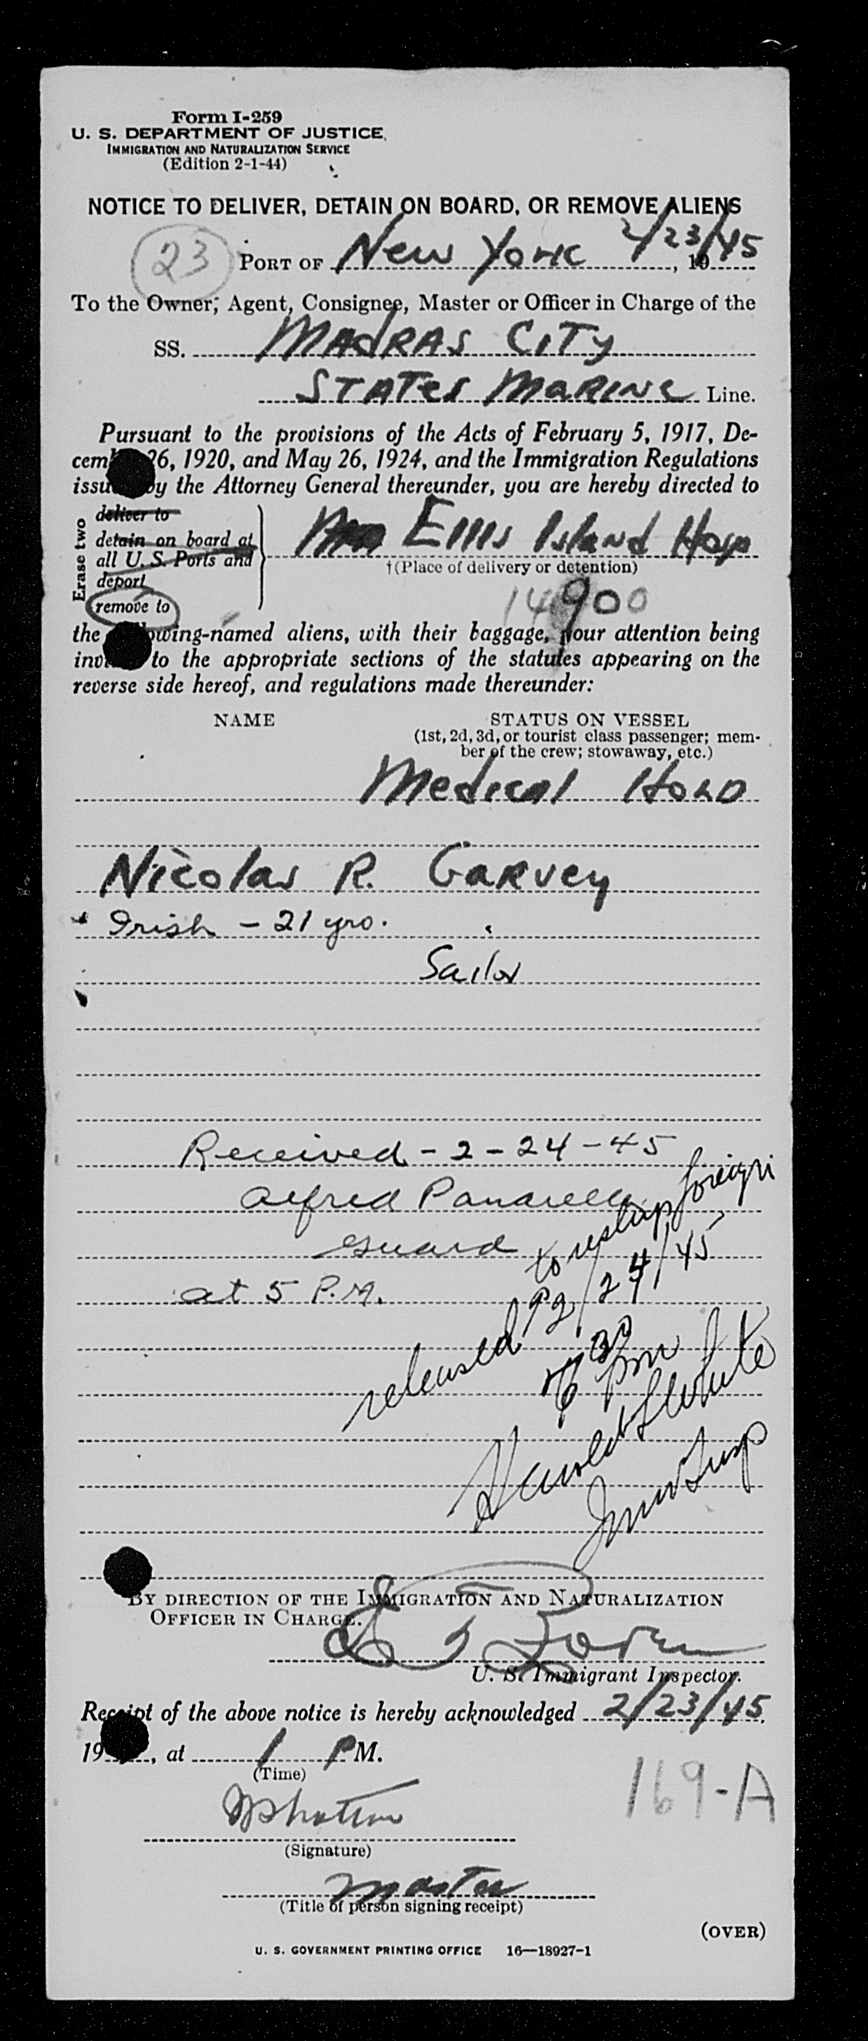 Form I-259
U. S. DEPARTMENT OF JUSTICE
IMMIGRATION AND NATURALIZATION SERVICE
(Edition 2-1-44)
NOTICE TO DELIVER, DETAIN ON BOARD, OR REMOVE ALIENS
23
PORT OF New York 2/23/45, 19
To the Owner, Agent, Consignee, Master or Officer in Charge of the
SS. MADRAS CITY
STATES MARINE Line.
Pursuant to the provisions of the Acts of February 5, 1917, De-
cem 26, 1920, and May 26, 1924, and the Immigration Regulations
issu by the Attorney General thereunder, you are hereby directed to
Erase two
deliver to
detain on board at
all U. S. Ports and
deport
remove to
Ellis Island Hosp
†(Place of delivery or detention)
14900
the owing-named aliens, with their baggage, your attention being
inv to the appropriate sections of the statutes appearing on the
reverse side hereof, and regulations made thereunder:
NAME STATUS ON VESSEL
(1st, 2d, 3d, or tourist class passenger; mem-
ber of the crew; stowaway, etc.)
Medical Hold
Nicolas R. Garvey
Irish - 21 yrs.
Sailor
Received - 2 - 24 - 45
Alfred Panarella
Guard
at 5 P.M.
released to reship foreign
2/24/45
6 30 pm
Harold L White
Imm Insp
BY DIRECTION OF THE IMMIGRATION AND NATURALIZATION
OFFICER IN CHARGE.
U. S. Immigrant Inspector.
Receipt of the above notice is hereby acknowledged 2/23/45,
19, at 1 PM.
(Time)
169-A
(Signature)
Master
(Title of person signing receipt)
(OVER)
U. S. GOVERNMENT PRINTING OFFICE 16—18927-1